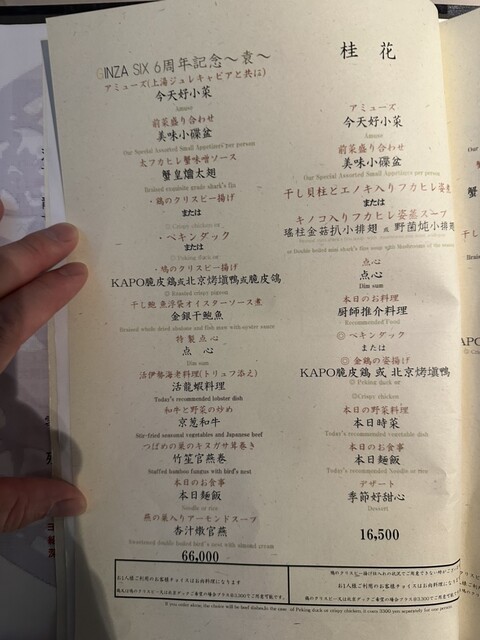 GINZA SIX 6周年記念～袁～
アミューズ(上湯ジュレキャビアと共に)
今天好小菜
Amuse
前菜盛り合わせ
美味小碟盆
Our Special Assorted Small Appetizers per person
太フカヒレ蟹味噌ソース
蟹皇燴太翅
Braised exquisite grade shark's fin
・鶏のクリスピー揚げ
または
◎Crispy chicken or
・ペキンダック
または
◎Peking duck or
・鳩のクリスピー揚げ
KAPO脆皮鷄或北京烤塡鴨或脆皮鴿
◎Roasted crispy pigeon
干し鮑 魚浮袋オイスターソース煮
金銀干鮑魚
Braised whole dried abalone and fish maw with oyster sauce
特製点心
点 心
Dim sum
活伊勢海老料理(トリュフ添え)
活龍蝦料理
Today's recommended lobster dish
和牛と野菜の炒め
京葱和牛
Stir-fried seasonal vegetables and Japanese beef
つばめの巣のキヌガサ茸巻き
竹笙官燕卷
Stuffed bamboo fungus with bird's nest
本日のお食事
本日麵飯
Noodle or rice
燕の巣入りアーモンドスープ
杏汁燉官燕
Sweetened double boiled bird's nest with almond cream
66,000
桂 花
アミューズ
今天好小菜
Amuse
前菜盛り合わせ
美味小碟盆
Our Special Assorted Small Appetizers per person
干し貝柱とエノキ入りフカヒレ姿煮
または
キノコ入りフカヒレ姿蒸スープ
瑤柱金菇扒小排翅 或 野菌炖小排翅
点心
点心
Dim sum
本日のお料理
厨師推介料理
Recommended Food
◎ペキンダック
または
◎ 金鶏の姿揚げ
KAPO脆皮鷄 或 北京烤塡鴨
◎Peking duck or
◎Crispy chicken
本日の野菜料理
本日時菜
Today's recommended vegetable dish
本日のお食事
本日麵飯
Today's recommended Noodle or rice
デザート
季節好甜心
Dessert
16,500
お1人様ご利用のお客様チョイスはお肉料理になります
お1人様ご利用のお客様チョイスはお肉料理になります